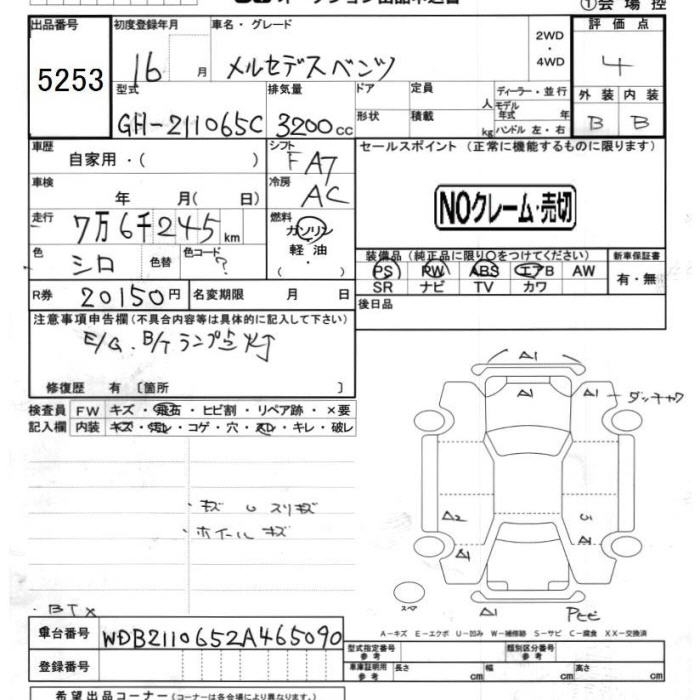 ①会 場 控
出品番号
5253
初度登録年月
16 月
車名・グレード
メルセデスベンツ
2WD
・
4WD
評 価 点
4
外 装 内 装
B B
型式
GH-211065C
排気量
3200cc
ドア
定員
人
形状
積載
kg
ディーラー・並行
モデル
年式 年
ハンドル 左・右
車歴
自家用・( )
シフト
FAT
車検
年 月( 日)
冷房
AC
走行
7万6千245km
燃料
ガソリン
軽 油
・
色
シロ
色替
色コード
?
R券
20150円
名変期限 月 日
セールスポイント (正常に機能するものに限ります)
NOクレーム・売切
装備品 (純正品に限り○をつけてください)
PS PW ABS エアB AW
SR ナビ TV カワ
新車保証書
有・無
後日品
注意事項申告欄(不具合内容等は具体的に記入して下さい)
E/G. B/T ランプ点灯
修復歴 有 〔箇所 〕
検査員
記入欄
FW キズ・飛石・ヒビ割・リペア跡・×要
内装 キズ・汚レ・コゲ・穴・スレ・キレ・破レ
・キズ ㄩ スリキズ
・ホイール キズ
・BTX
A1
A1
A1
A2
A1
A1
A1
スペア
A-キズ E-エクボ U-凹み W-補修跡 S-サビ C-腐食 XX-交換済
車台番号
WDB2110652A465090
登録番号
型式指定番号
参 考
類別区分番号
参 考
車庫証明用
参 考
長さ cm
幅 cm
高さ cm
希 望 出 品 コ ー ナ ー (コーナーは各会場により異なります。)